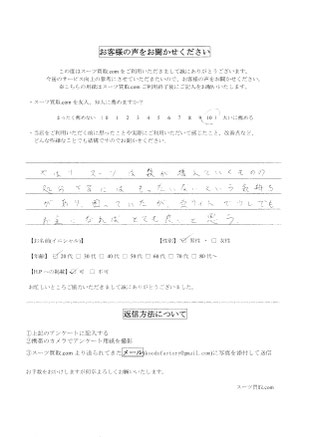 お客様の声をお聞かせください
この度はスーツ買取.comをご利用いただきまして誠にありがとうございます。
今後のサービス向上の参考にさせていただきたいので、お客様の声をお聞かせください。
※こちらの用紙はスーツ買取.comご利用終了後にご記入をお願いいたします。
・スーツ買取.comを友人、知人に薦めますか？
まったく薦めない ( 0 1 2 3 4 5 6 7 8 9 10 ) 大いに薦める
・当社をご利用いただく前に思ったことや実際にご利用いただいて感じたこと、改善点など、
どんな些細なことでも結構ですのでお聞かせください。
スーツ は 数が増えていくものの
処分するには もったいない という気持ち
があり 困っていたが 少しでも
お金になれば とても良いと思う。
【お名前(イニシャル)】 【性別】 男性 ・ 女性
【年齢】 20代 30代 40代 50代 60代 70代 80代～
【HPへの掲載】 可 不可
お忙しいところご協力いただきまして誠にありがとうございました。
返信方法について
①上記のアンケートに記入する
②携帯のカメラでアンケート用紙を撮影
③スーツ買取.comより送られてきたメール
に写真を添付して送信
お手数をおかけしますが何卒よろしくお願いいたします。
スーツ買取.com